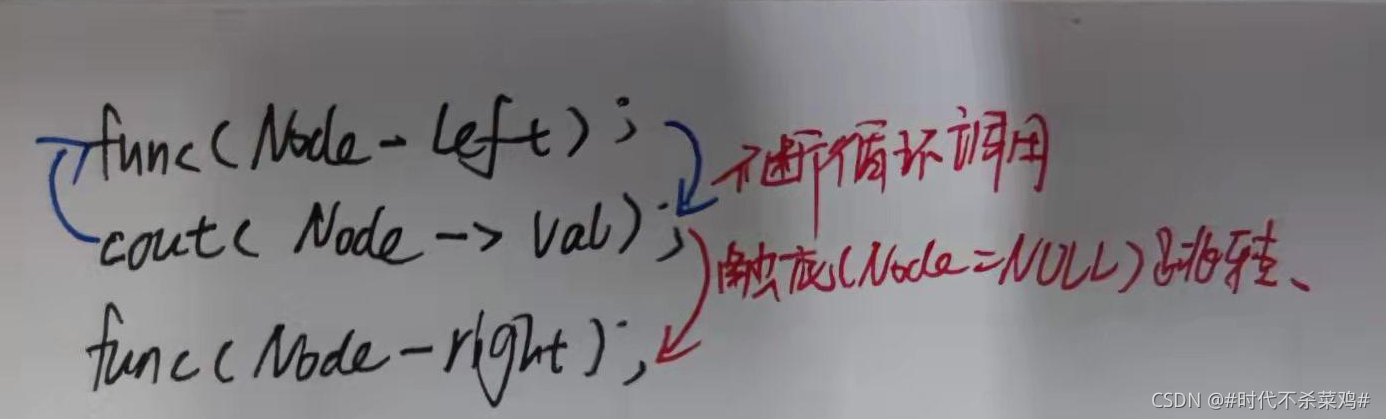 func(Node-left);
不断循环调用
cout( Node -> val);
触底(Node=NULL)
func(Node-right);
CSDN @#时代不杀菜鸡#